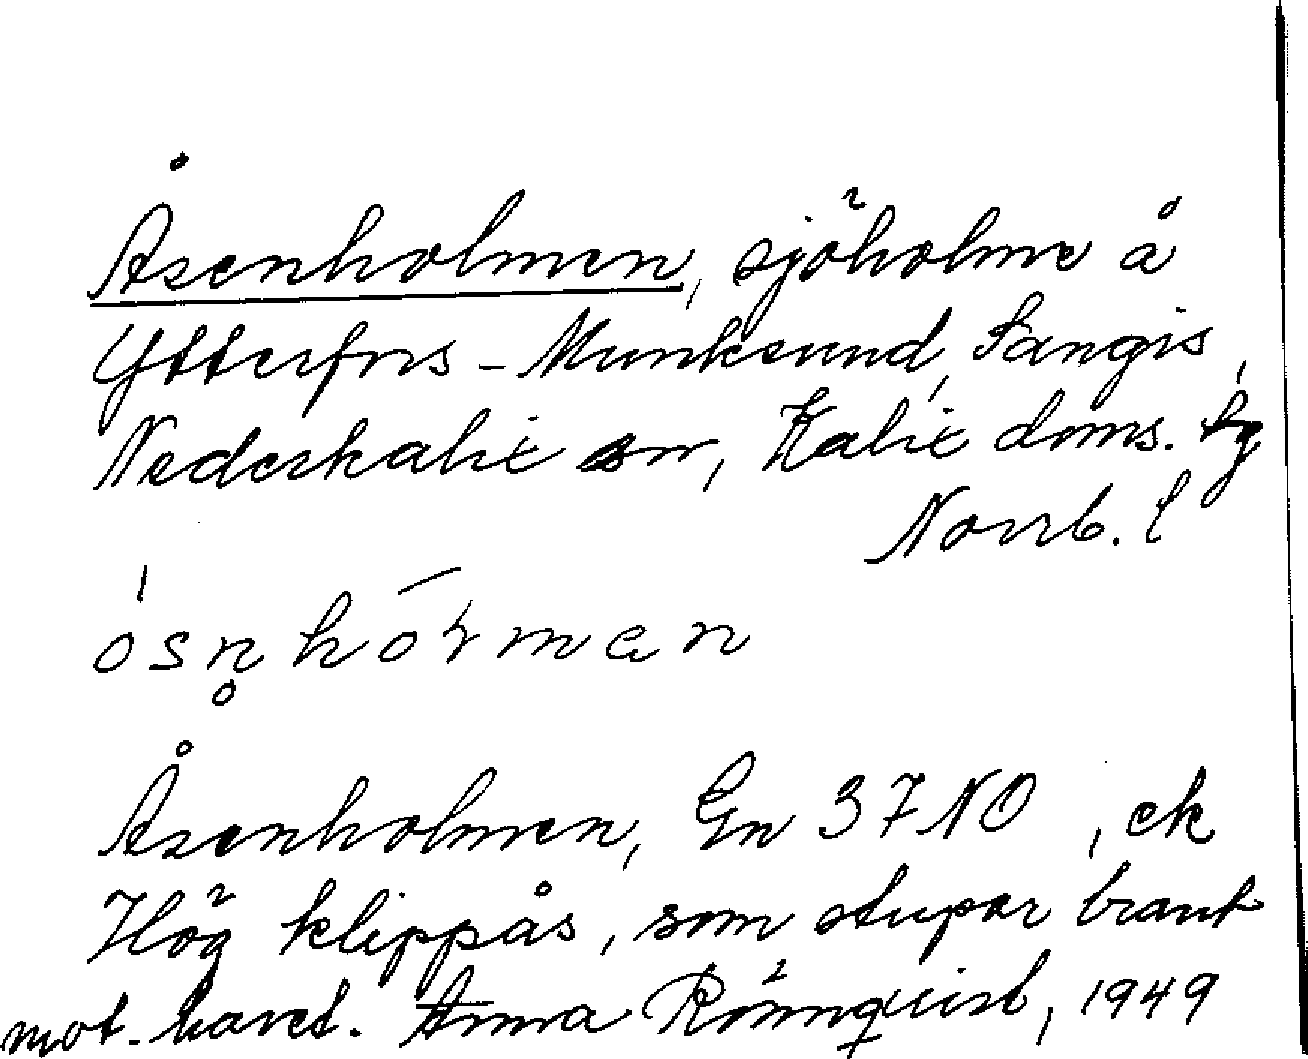 Åsenholmen, sjöholme å
Ytterfors-Munksund, Sangis,
Nederkalix sn, Kalix doms. lg
Norrb. l
ósn̥hōrman
Åsenholmen, Gn 37NO, ek
Hög klippås, som stupar brant
mot havet. Anna Rönnqvist, 1949